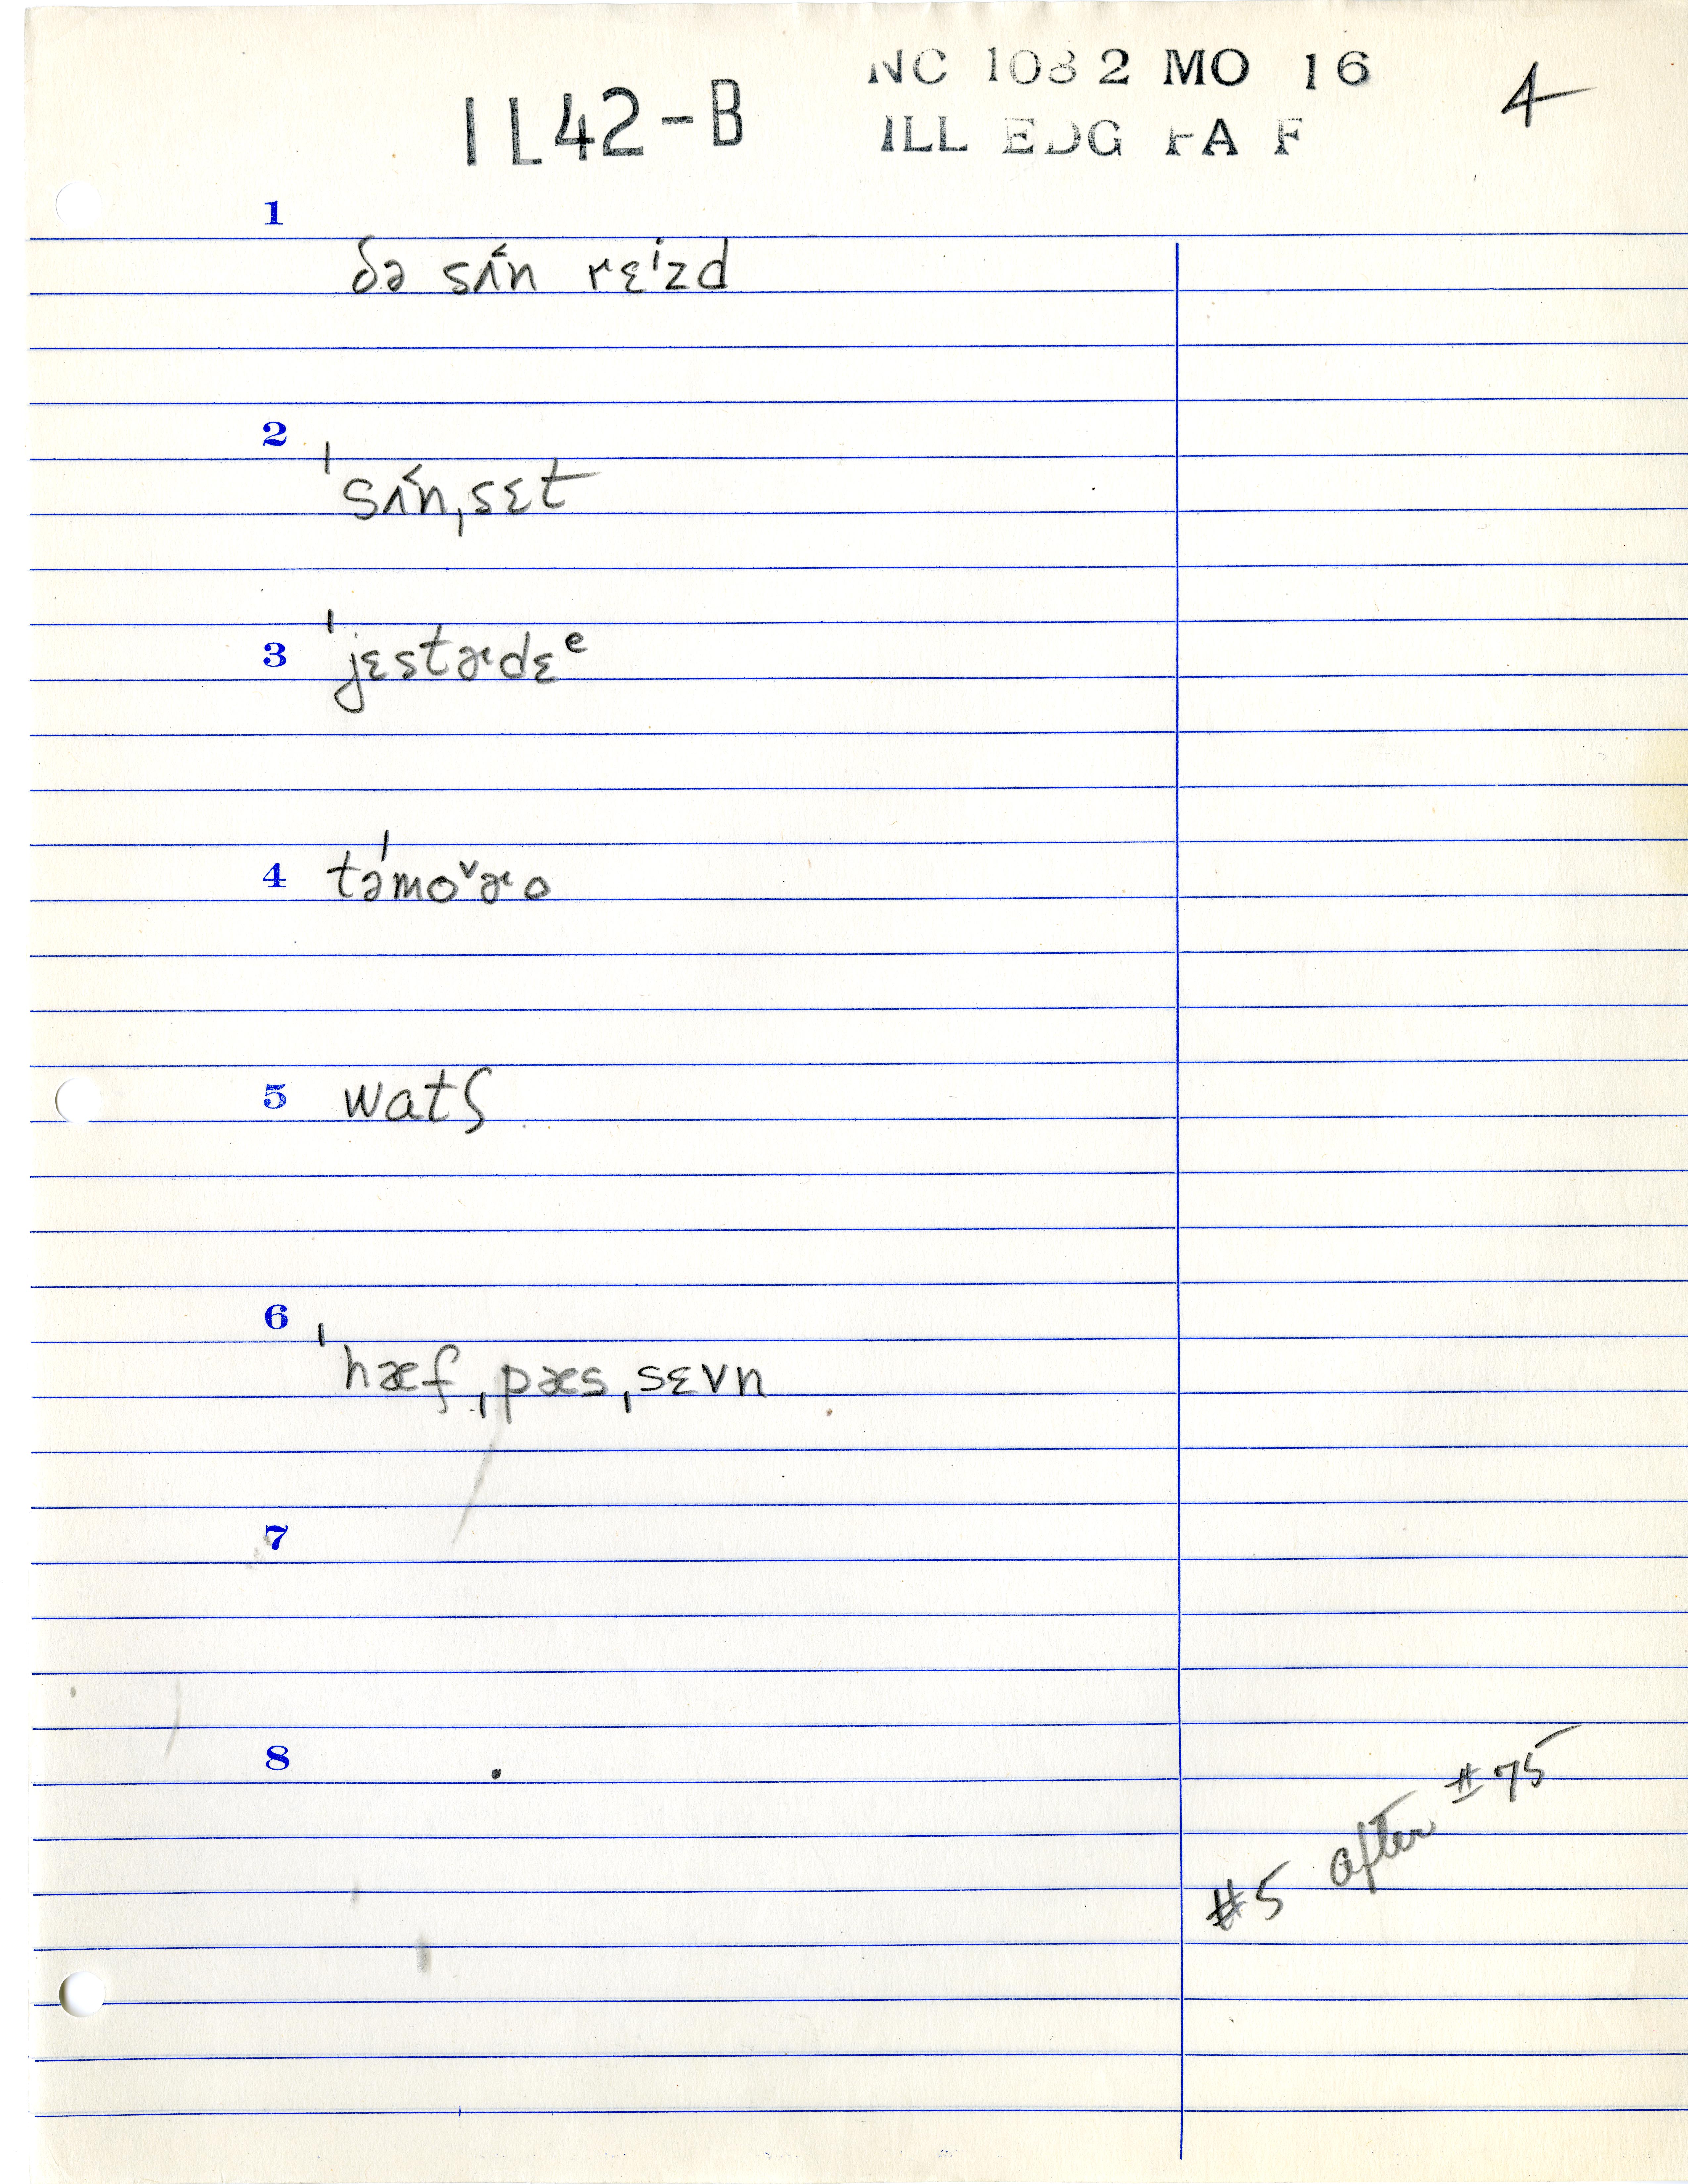 NC 1082 MO 16
IL42-B
4
ILL EDG PA F
1
ðə sʌ˂n rɛⁱzd
2
ˈsʌ˂nˌsɛt
3
ˈjɛstɚdɛᵉ
4
təˈmo˅ɚo
5
watʃ
6
ˈhæfˌpæsˌsɛvn
7
8
#5 after #75